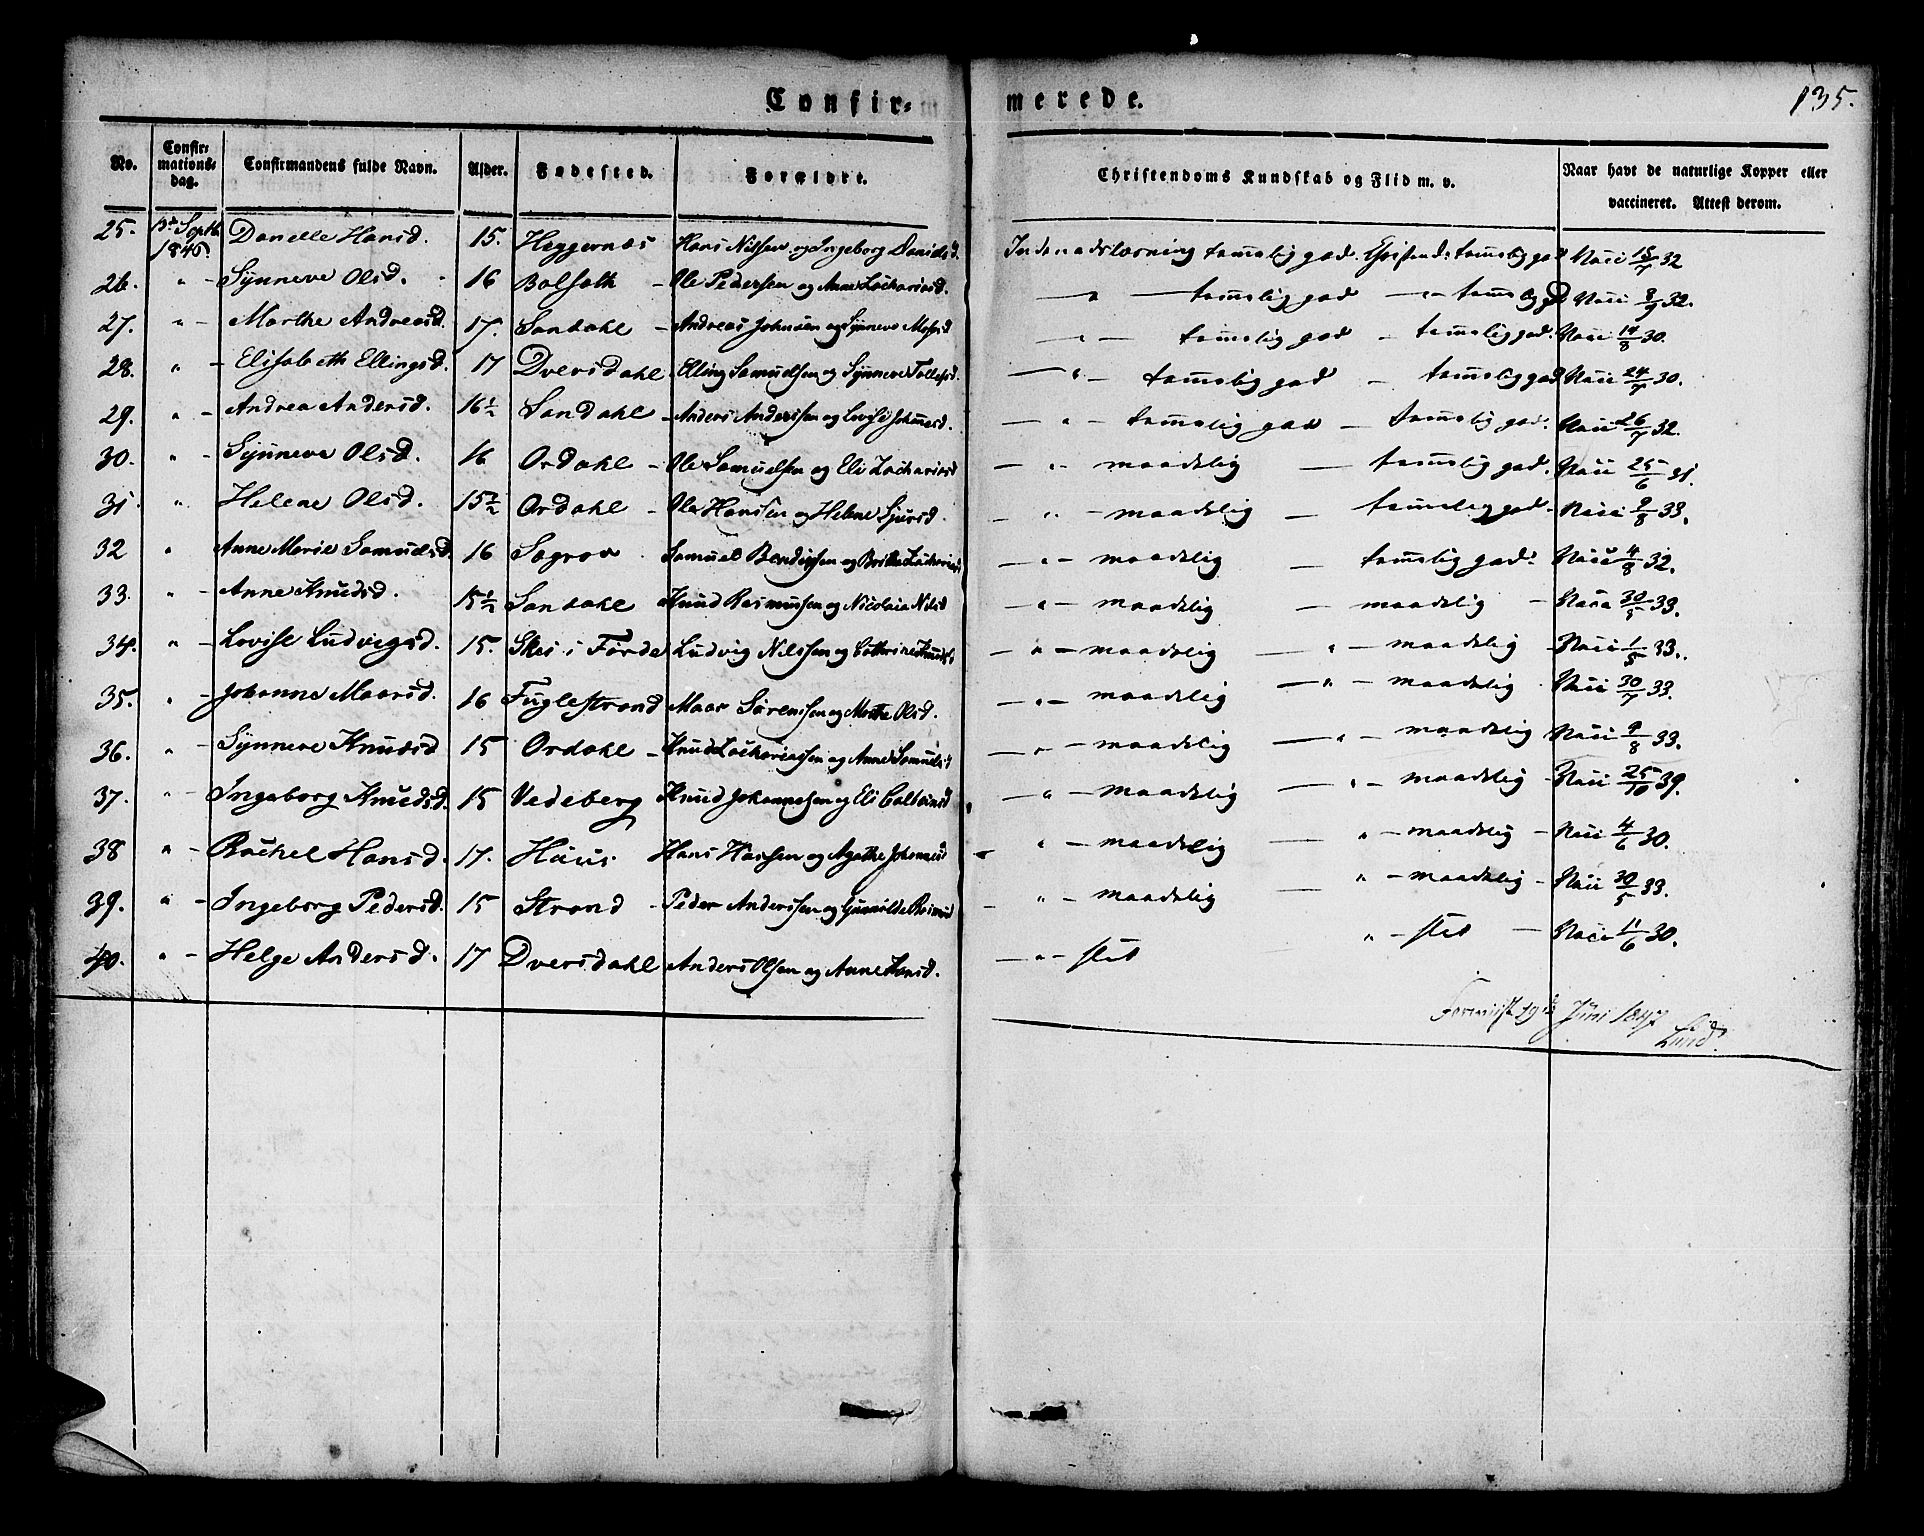 Confir- merede. 135.
No. Confir-mations-dag. Confirmandens fulde Navn. Alder. Fødested. Forældre. Christendoms Kundskab og Flid m. v. Naar havt de naturlige Kopper eller vaccineret. Attest derom.
25. Septb. 1845. Danelle Hansd. 15. Heggernæs Hans Nilsen og Ingeborg Danielsd. Indenadslæsning temelig god. temelig god Vacc 15/7 32
26. " - Synneve Olsd. 16 Bolsath - Ole Pedersen og Anne Zachariasd. — " — temelig god — " — temelig gd Vacc 8/9 32.
27. " - Marthe Andreasd. 17. Sandahl - Andreas Johnsen og Synneve Mosesd " — temelig god — temelig god. Vacc 14/8 30.
28. " - Elisabeth Ellingsd. 17 Dversdahl Elling Samuelsen og Synneve Tollefsd. — " — temelig god — temelig god Vacc 24/7 30.
29. " - Andrea Andersd. 16½ Sandahl - Anders Andersen og Lovise Johannesd. — " — temelig god — temelig god. Vacc 26/7 32.
30. " - Synneve Olsd. 16 Ordahl - Ole Samuelsen og Eli Zachariasd — " — maadelig — temelig god. Vacc 25/6 31.
31. " Helene Olsd. 15½ Ordahl - Ole Hansen og Helene Sjursd. — " — maadelig — temelig god - Vacc 9/8 33.
32 " Anne Marie Samuelsd. 16 Sægrov Samuel Bendixsen og Brithe Zachariasd — " — maadelig — temelig god. Vacc 4/8 32.
33. " - Anne Knudsd. 15½ Sandahl Knud Rasmussen og Nicolaia Nilsd — " — maadelig — maadelig - Vacc 30/5 33.
34. " - Lovise Ludvigsd. 15. Skei i Førde Ludvig Nilssen og Cathrine Knudsd — " — maadelig — " — maadelig - Vacc 1/5 33.
35. " - Johanne Maarsd. 16 Fuglestrand Maar Sørensen og Marthe Olsd. — " — maadelig — " — maadelig Vacc 30/7 33.
36. " - Synneve Knudsd 15 Ordahl - Knud Zachariassen og Anne Samuelsd — " — maadelig — " — maadelig Vacc 9/8 33.
37. " - Ingeborg Knudsd. 15 Vedeberg Knud Johannesen og Eli — " — maadelig — " — maadelig - Vacc 25/10 39.
38 " - Rachel Hansd. 17. Huus. Hans Hansen og Agathe Johannesd — " — maadelig — " — maadelig - Vacc 4/6 30.
39. " - Ingeborg Pedersd. 15 Strand - Peder Andersen og Gunnilde Rasmusd — " — maadelig — " — maadelig - Vacc 30/5 33.
40. " - Helge Andersd. 17 Dversdahl Anders Olsen og Anne Hansd. — " — slet " — slet — Vacc 11/6 30.
Juni 1847
Lund.